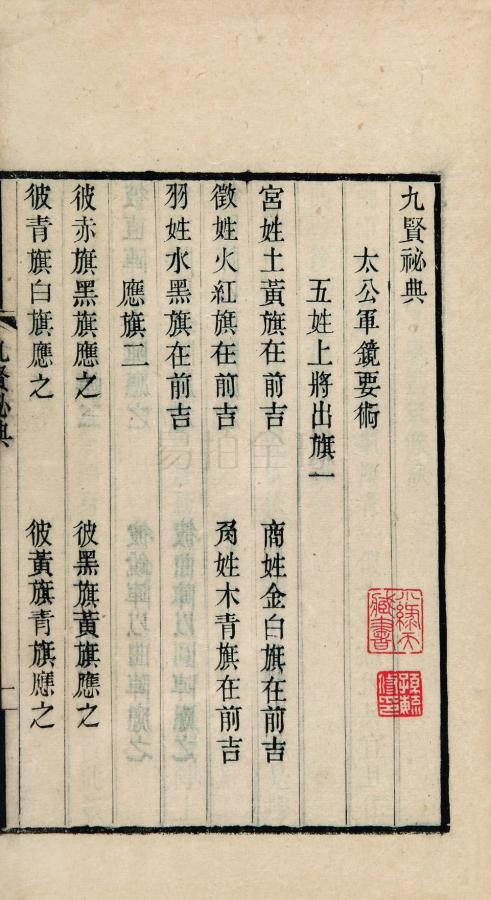 九賢祕典
太公軍鏡要術
五姓上將出旗一
宮姓土黃旗在前吉　商姓金白旗在前吉
徵姓火紅旗在前吉　角姓木青旗在前吉
羽姓水黑旗在前吉
應旗二
彼赤旗黑旗應之　彼黑旗黃旗應之
彼青旗白旗應之　彼黃旗青旗應之
九賢祕典
一
小綠天藏書